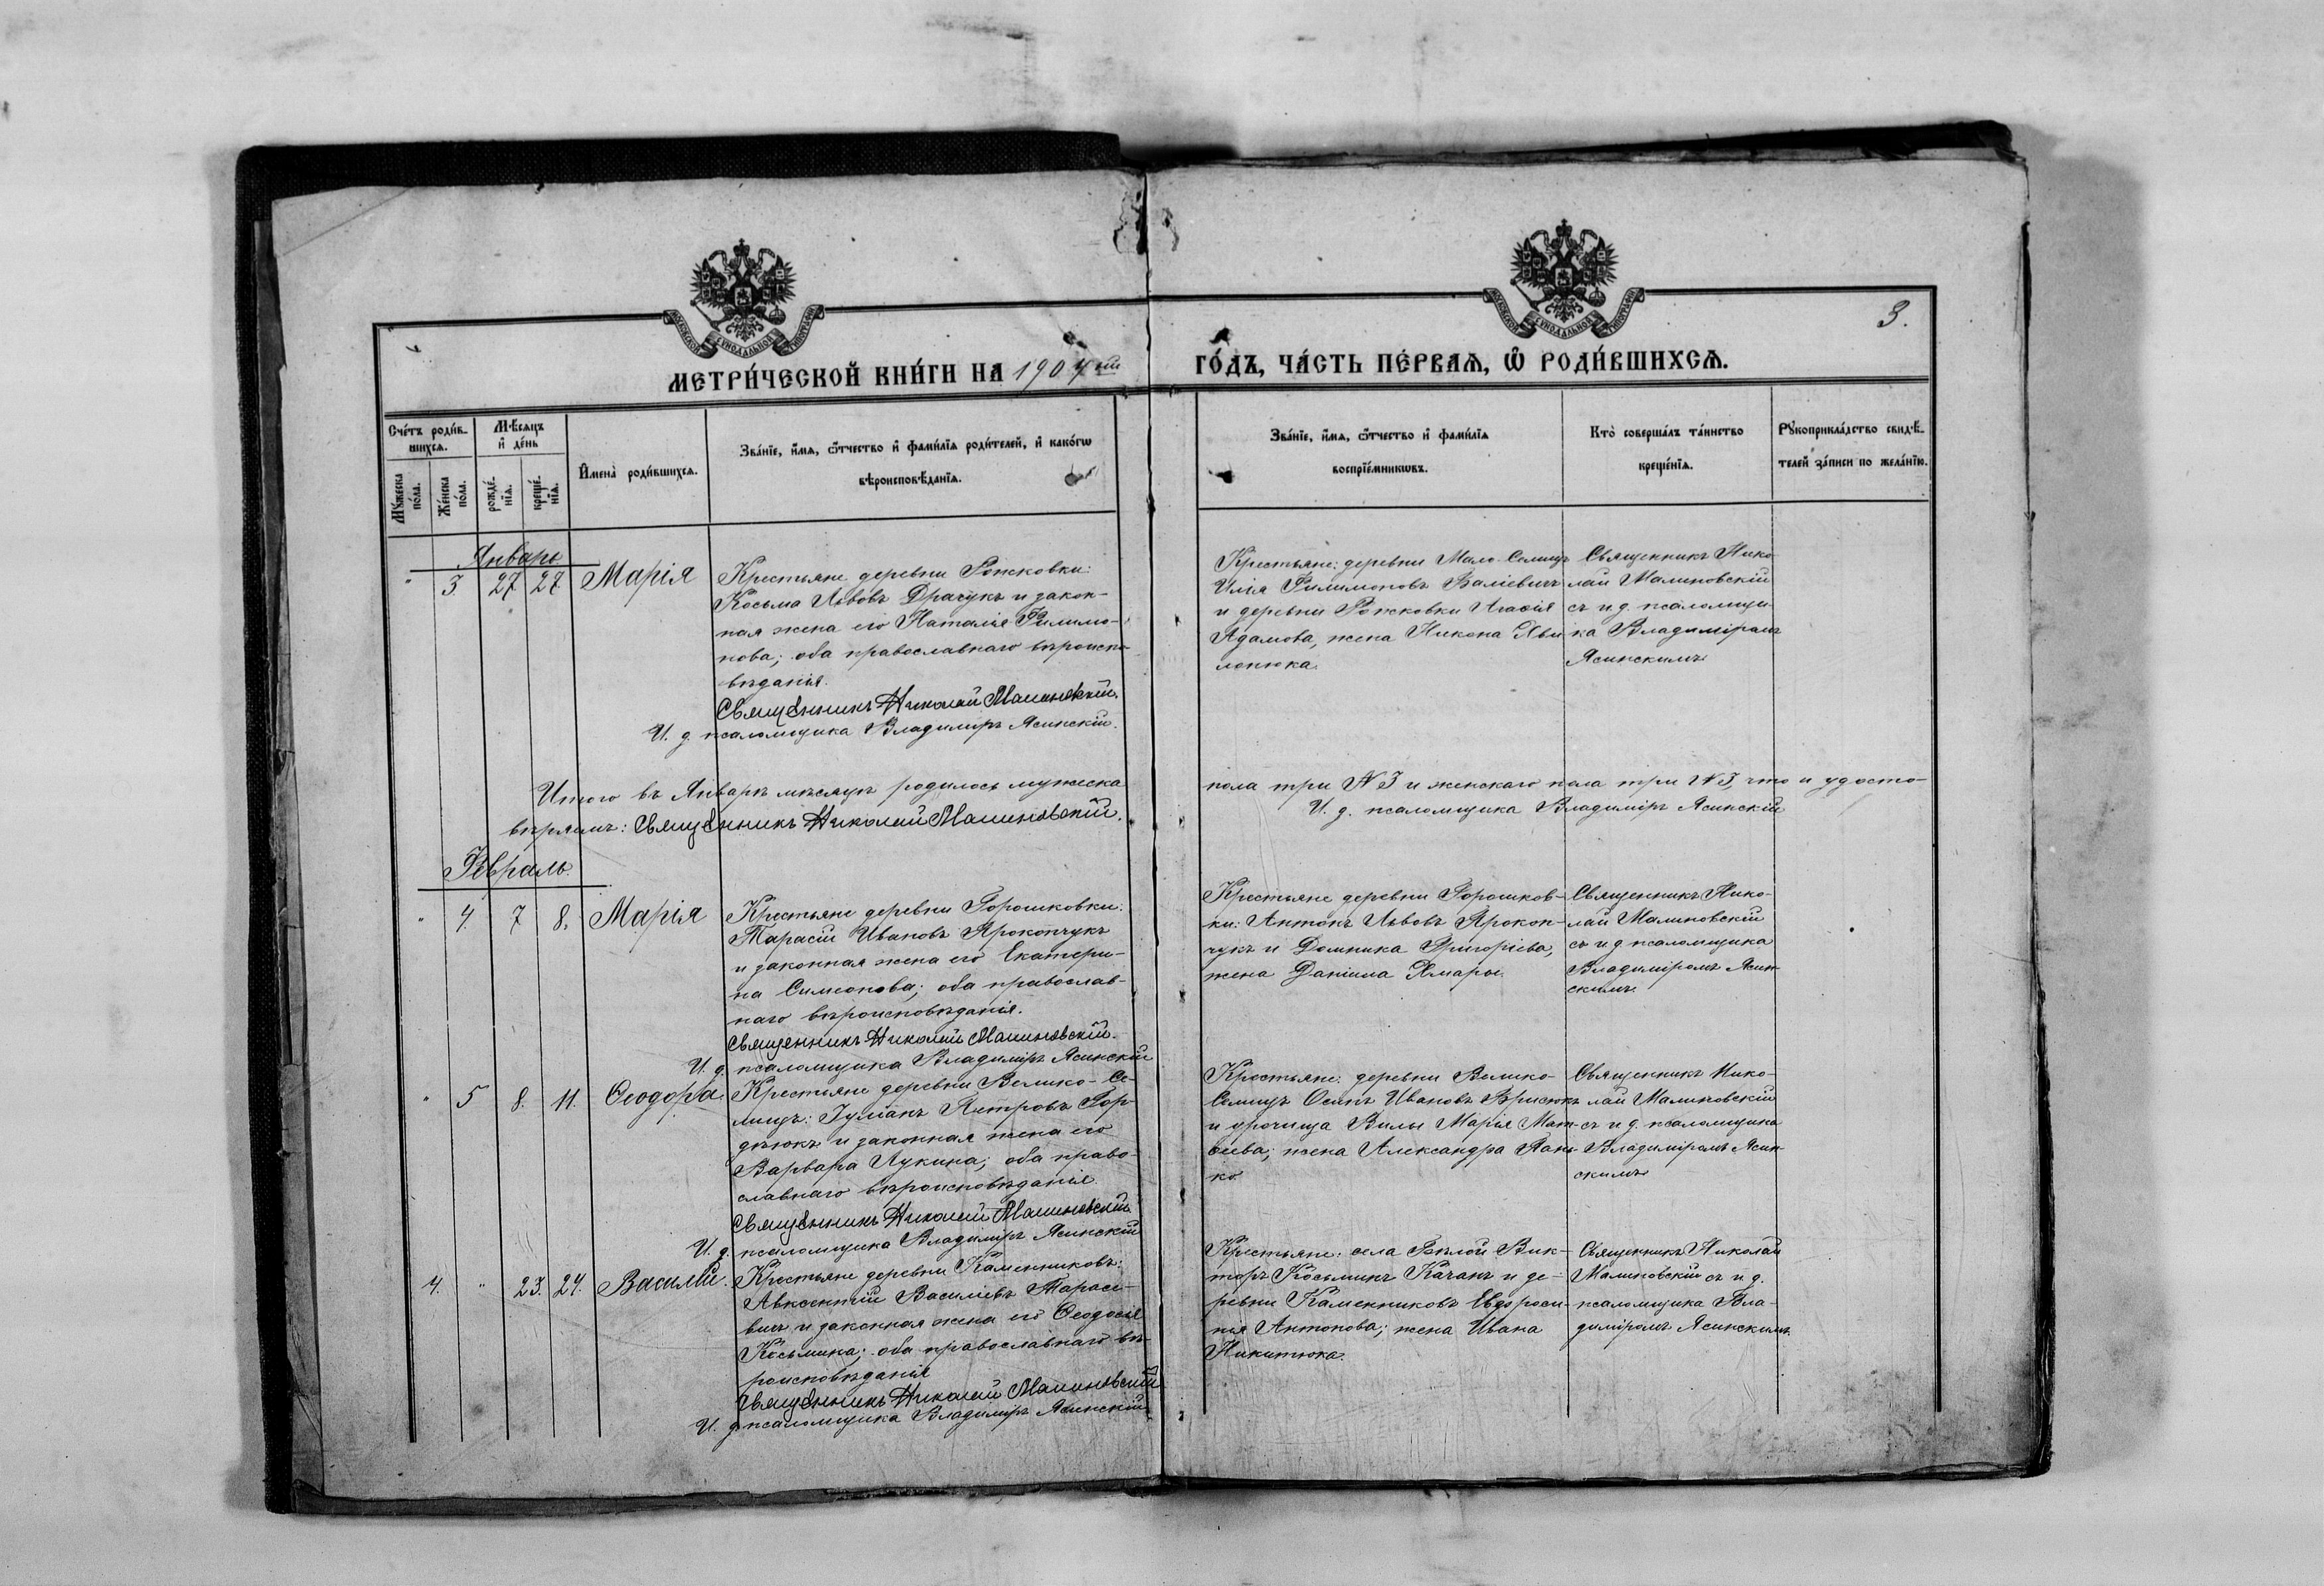 МОСКОВСКОЙ СУНОДАЛЬНОЙ ТИПОГРАФІИ
МОСКОВСКОЙ СУНОДАЛЬНОЙ ТИПОГРАФІИ
3.
МЕТРИ́ЧЕСКОЙ КНИ́ГИ НА 1904 ый
ГО́ДЪ, ЧА́СТЬ ПЕ́РВАѦ, Ѽ РОДИ́ВШИХСѦ.
Сче́тъ роди́в-
шихсѧ.
Мѣ́сяцъ
и҆ де́нь
Мꙋ́жеска по́ла.
Же́нска по́ла.
рожде́-нїѧ.
креще́-нїѧ.
И҆мена̀ роди́вшихсѧ.
Зва́нїе, и҆́мѧ, ѻ҆́тчество и҆ фами́лїѧ роди́телей, и҆ како́гѡ
вѣроисповѣ́данїѧ.
Зва́нїе, и҆́мѧ, ѻ҆́тчество и҆ фами́лїѧ
воспрїе́мникѡвъ.
Кто̀ соверша́лъ та́инство
креще́нїѧ.
Рꙋкоприкла́дство свидѣ́-
телей за́писи по жела́нїю.
Январь
" 3 27 27 Марія
Крестьяне деревни Рожковки:
Косьма Львовъ Драчукъ и закон-
ная жена его Наталія Филимо-
нова; оба православнаго вѣроиспо-
вѣданія.
Священникъ Николай Малиновскій.
И. д. псаломщика Владиміръ Ясинскій.
Крестьяне: деревни Мало-Селищъ
Илія Филимоновъ Валіевичъ
и деревни Рожковки Агаѳія
Адамова, жена Никона
лонюка.
Священникъ Нико-
лай Малиновскій
съ и д. псаломщи-
ка Владиміромъ
Ясинскимъ.
Итого въ Январѣ мѣсяцѣ родилось мужеска
пола три № 3 и женскаго пола три № 3, что и удосто-
вѣряемъ: Священникъ Николай Малиновскій.
И. д. псаломщика Владиміръ Ясинскій
Февраль.
" 4. 7 8. Марія
Крестьяне деревни Горошковки:
Тарасій Ивановъ Прокопчукъ
и законная жена его Екатери-
на Симеонова; оба православ-
наго вѣроисповѣданія.
Священникъ Николай Малиновскій.
И. д. псаломщика Владиміръ Ясинскій
Крестьяне деревни Горошков-
ки: Антонъ Львовъ Прокоп-
чукъ и Домника Григоріева,
жена Даніила
Священникъ Нико-
лай Малиновскій
съ и д псаломщика
Владиміромъ Ясин-
скимъ.
" 5 8. 11. Ѳеодора.
Крестьяне деревни Велико-Се-
лищъ: Іуліанъ Петровъ Гор-
дѣюкъ и законная жена его
Варвара Лукина; оба право-
славнаго вѣроисповѣданія.
Священникъ Николай Малиновскій
И. д. псаломщика Владиміръ Ясинскій
Крестьяне: деревни Велико-
Селищъ Осипъ Ивановъ Брисюкъ
и урочища Вилы Марія Мат-
ѳеева; жена Александра Пань-
ко.
Священникъ Нико-
лай Малиновскій
съ и д. псаломщика
Владиміромъ Ясин-
скимъ
4. " 23. 24. Василій.
Крестьяне деревни Каменниковъ:
Авксентій Василіевъ Тарасе-
вичъ и законная жена его Ѳеодосія
Косьмина; оба православнаго вѣ-
роисповѣданія
Священникъ Николай Малиновскій
И. д псаломщика Владиміръ Ясинскій
Крестьяне: села Бѣлой Вик-
торъ Косьминъ Качанъ и де-
ревни Каменниковъ Евдороси-
нія Антонова; жена Ивана
Никитюка.
Священникъ Николай
Малиновскій съ и д.
псаломщика Вла-
диміромъ Ясинскимъ.